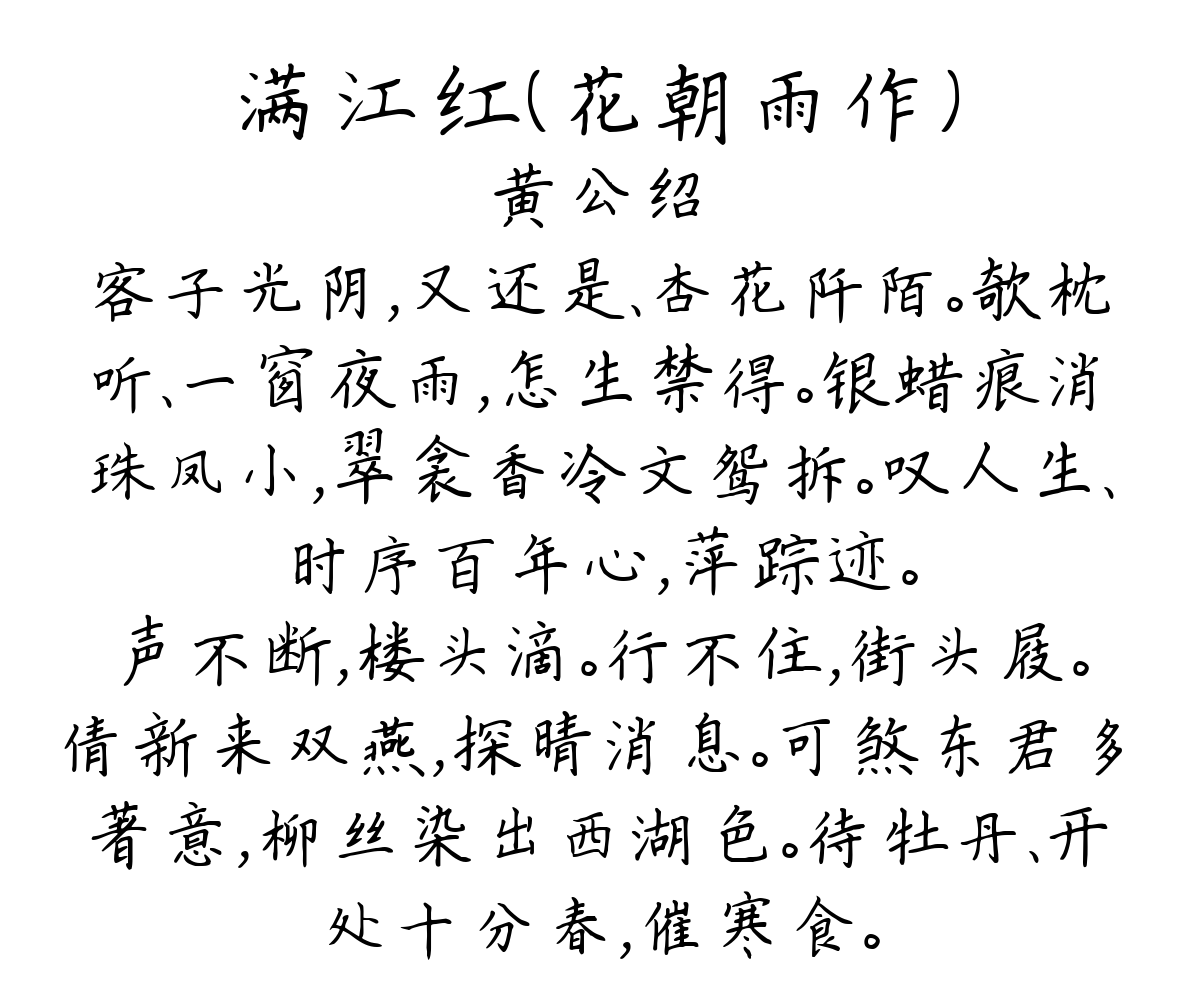 满江红(花朝雨作)
黄公绍
客子光阴,又还是、杏花阡陌。欹枕
听、一窗夜雨,怎生禁得。银蜡痕消
珠凤小,翠衾香冷文鸳拆。叹人生、
时序百年心,萍踪迹。
声不断,楼头滴。行不住,街头屐。
倩新来双燕,探晴消息。可煞东君多
著意,柳丝染出西湖色。待牡丹、开
处十分春,催寒食。